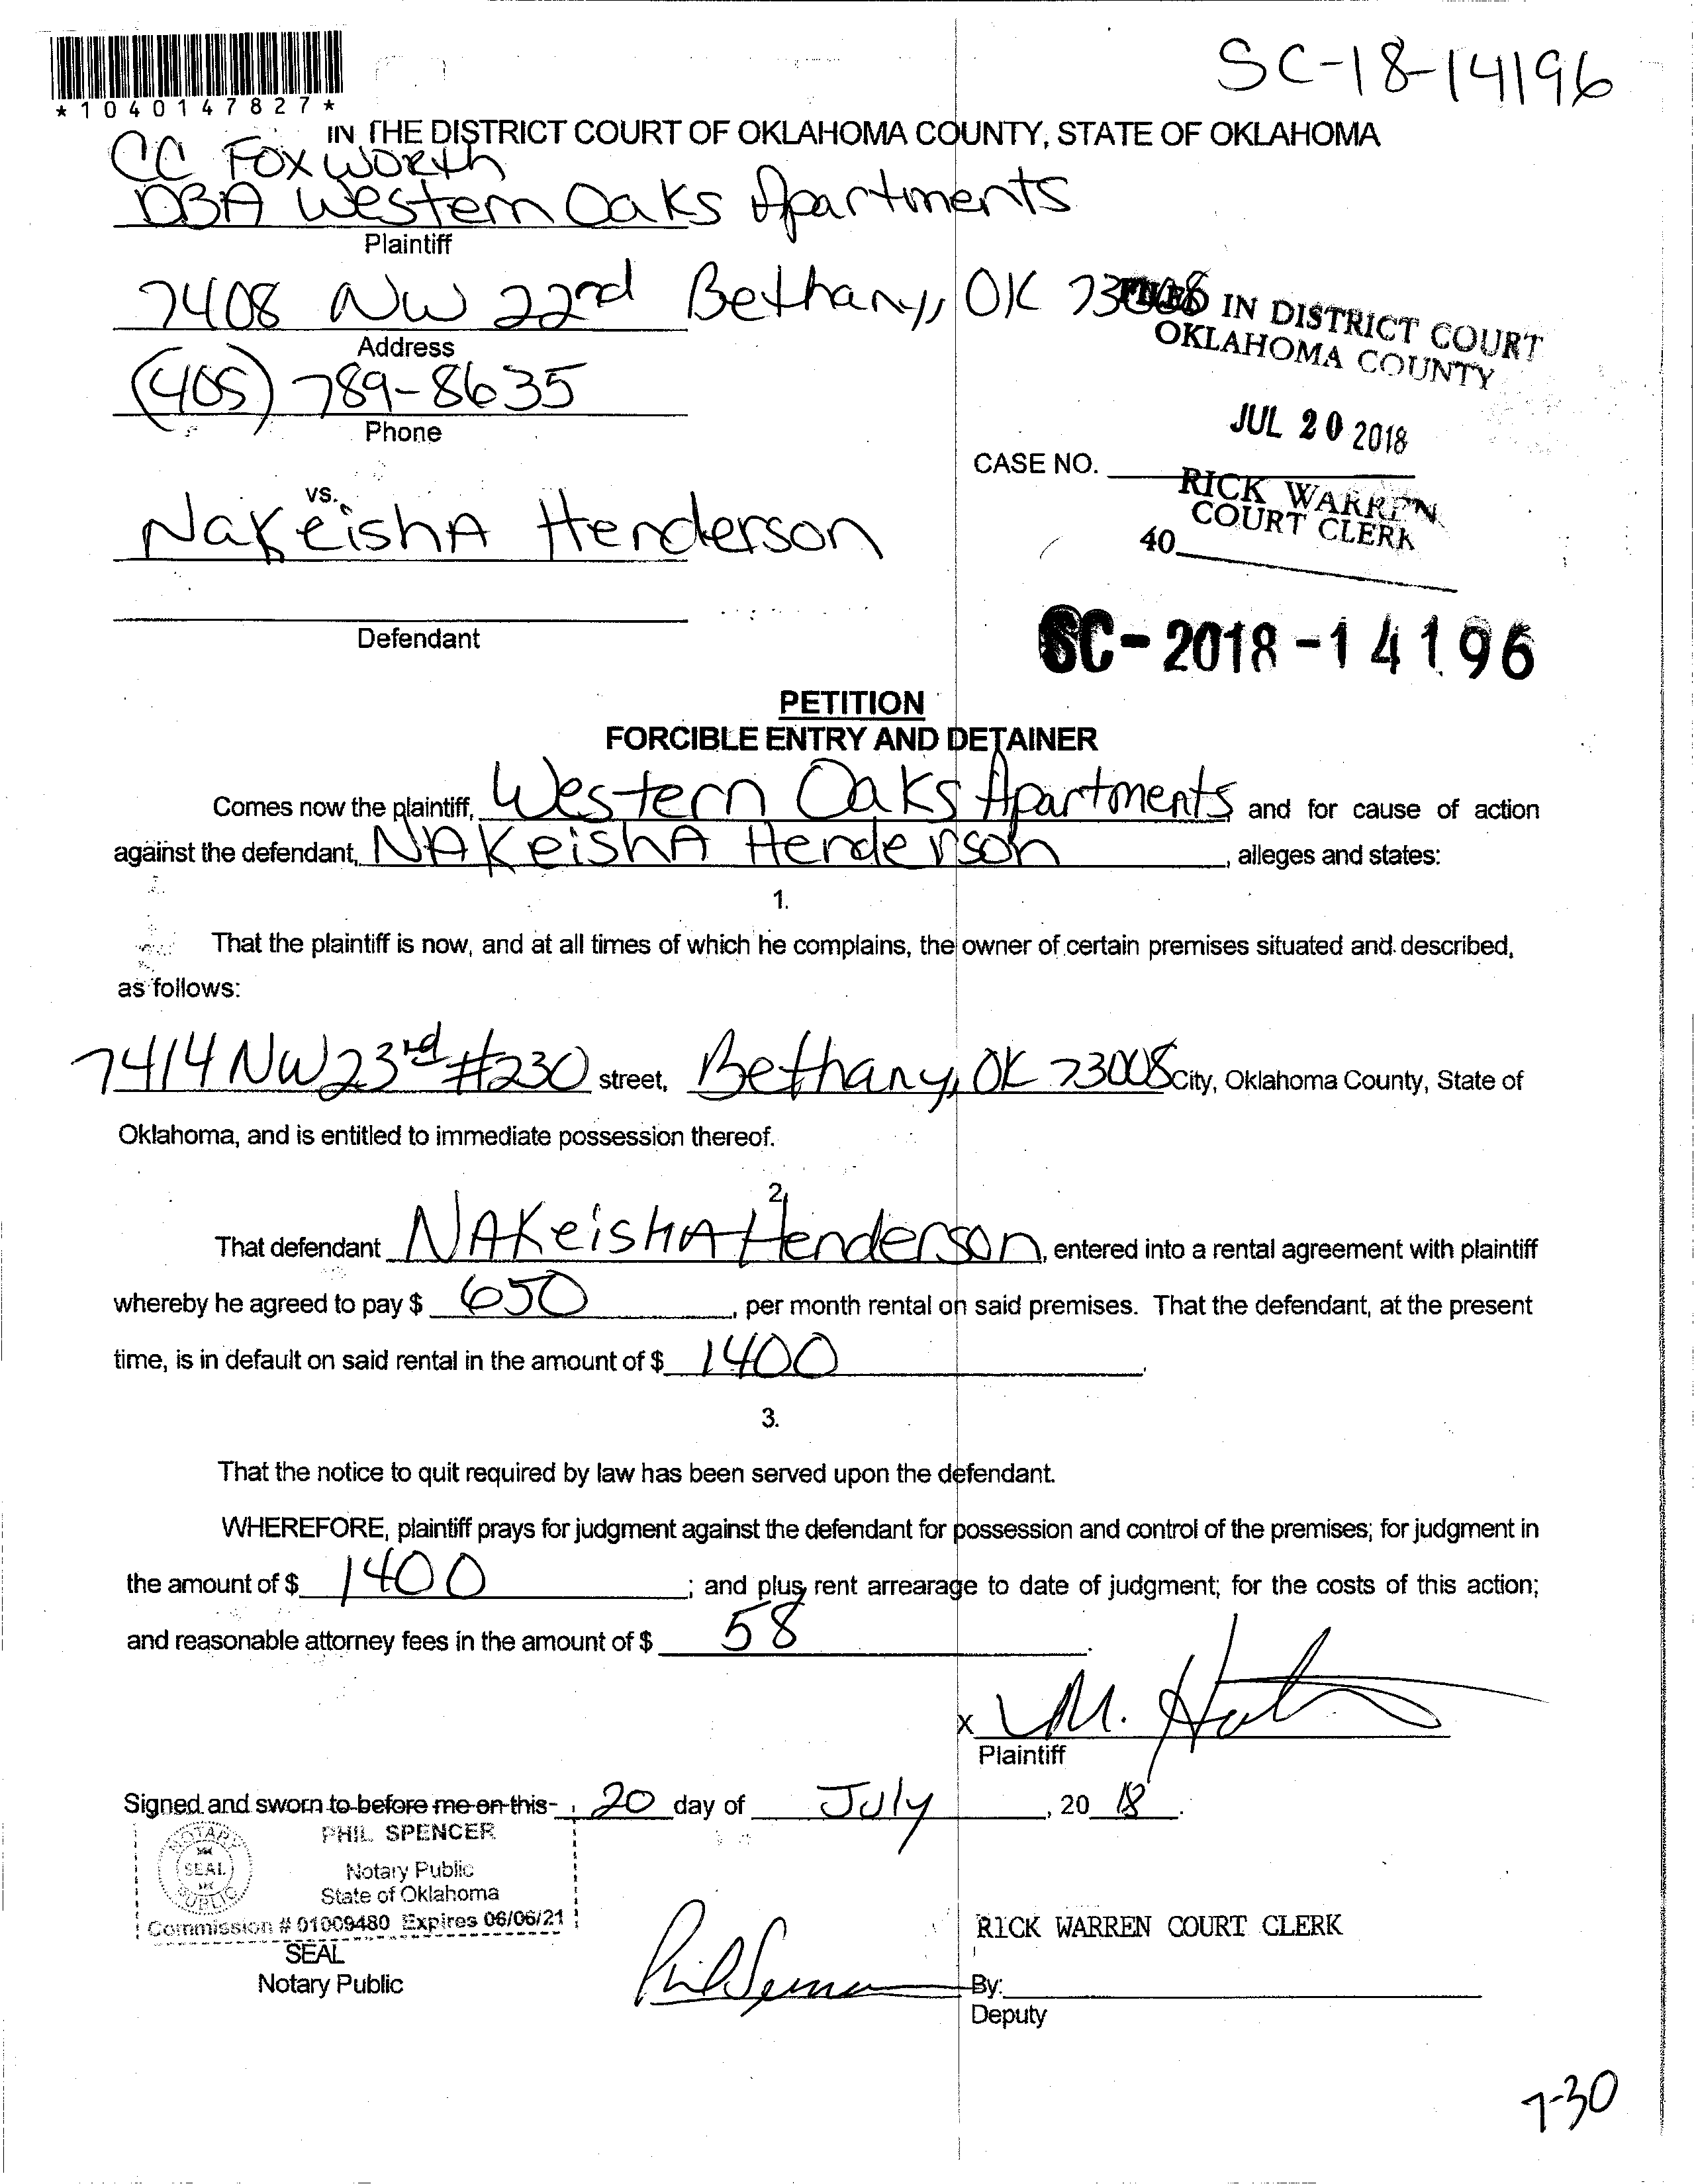 SC-18-14196
*1040147827*
IN THE DISTRICT COURT OF OKLAHOMA COUNTY, STATE OF OKLAHOMA
CC FOXWORTH
DBA Western Oaks Apartments
Plaintiff
7408 NW 22nd Bethany, OK 73008
Address
FILED IN DISTRICT COURT
OKLAHOMA COUNTY
(405) 789-8635
Phone
JUL 20 2018
CASE NO.
RICK WARREN
COURT CLERK
40
vs.
NakeishA Henderson
Defendant
SC-2018-14196
PETITION
FORCIBLE ENTRY AND DETAINER
Comes now the plaintiff, Western Oaks Apartments and for cause of action
against the defendant, NAKeishA Henderson, alleges and states:
1.
That the plaintiff is now, and at all times of which he complains, the owner of certain premises situated and described,
as follows:
7414 NW 23rd #230 street, Bethany, OK 73008 City, Oklahoma County, State of
Oklahoma, and is entitled to immediate possession thereof.
2.
That defendant NAKeishA Henderson, entered into a rental agreement with plaintiff
whereby he agreed to pay $ 650, per month rental on said premises. That the defendant, at the present
time, is in default on said rental in the amount of $ 1400.
3.
That the notice to quit required by law has been served upon the defendant.
WHEREFORE, plaintiff prays for judgment against the defendant for possession and control of the premises; for judgment in
the amount of $ 1400; and plus rent arrearage to date of judgment; for the costs of this action;
and reasonable attorney fees in the amount of $ 58.
x M.
Plaintiff
Signed and sworn to before me on this 20 day of July, 20 18.
PHIL SPENCER
NOTARY
SEAL
PUBLIC
Notary Public
State of Oklahoma
Commission # 01009480 Expires 06/06/21
SEAL
Notary Public
RICK WARREN COURT CLERK
By:
Deputy
7-30